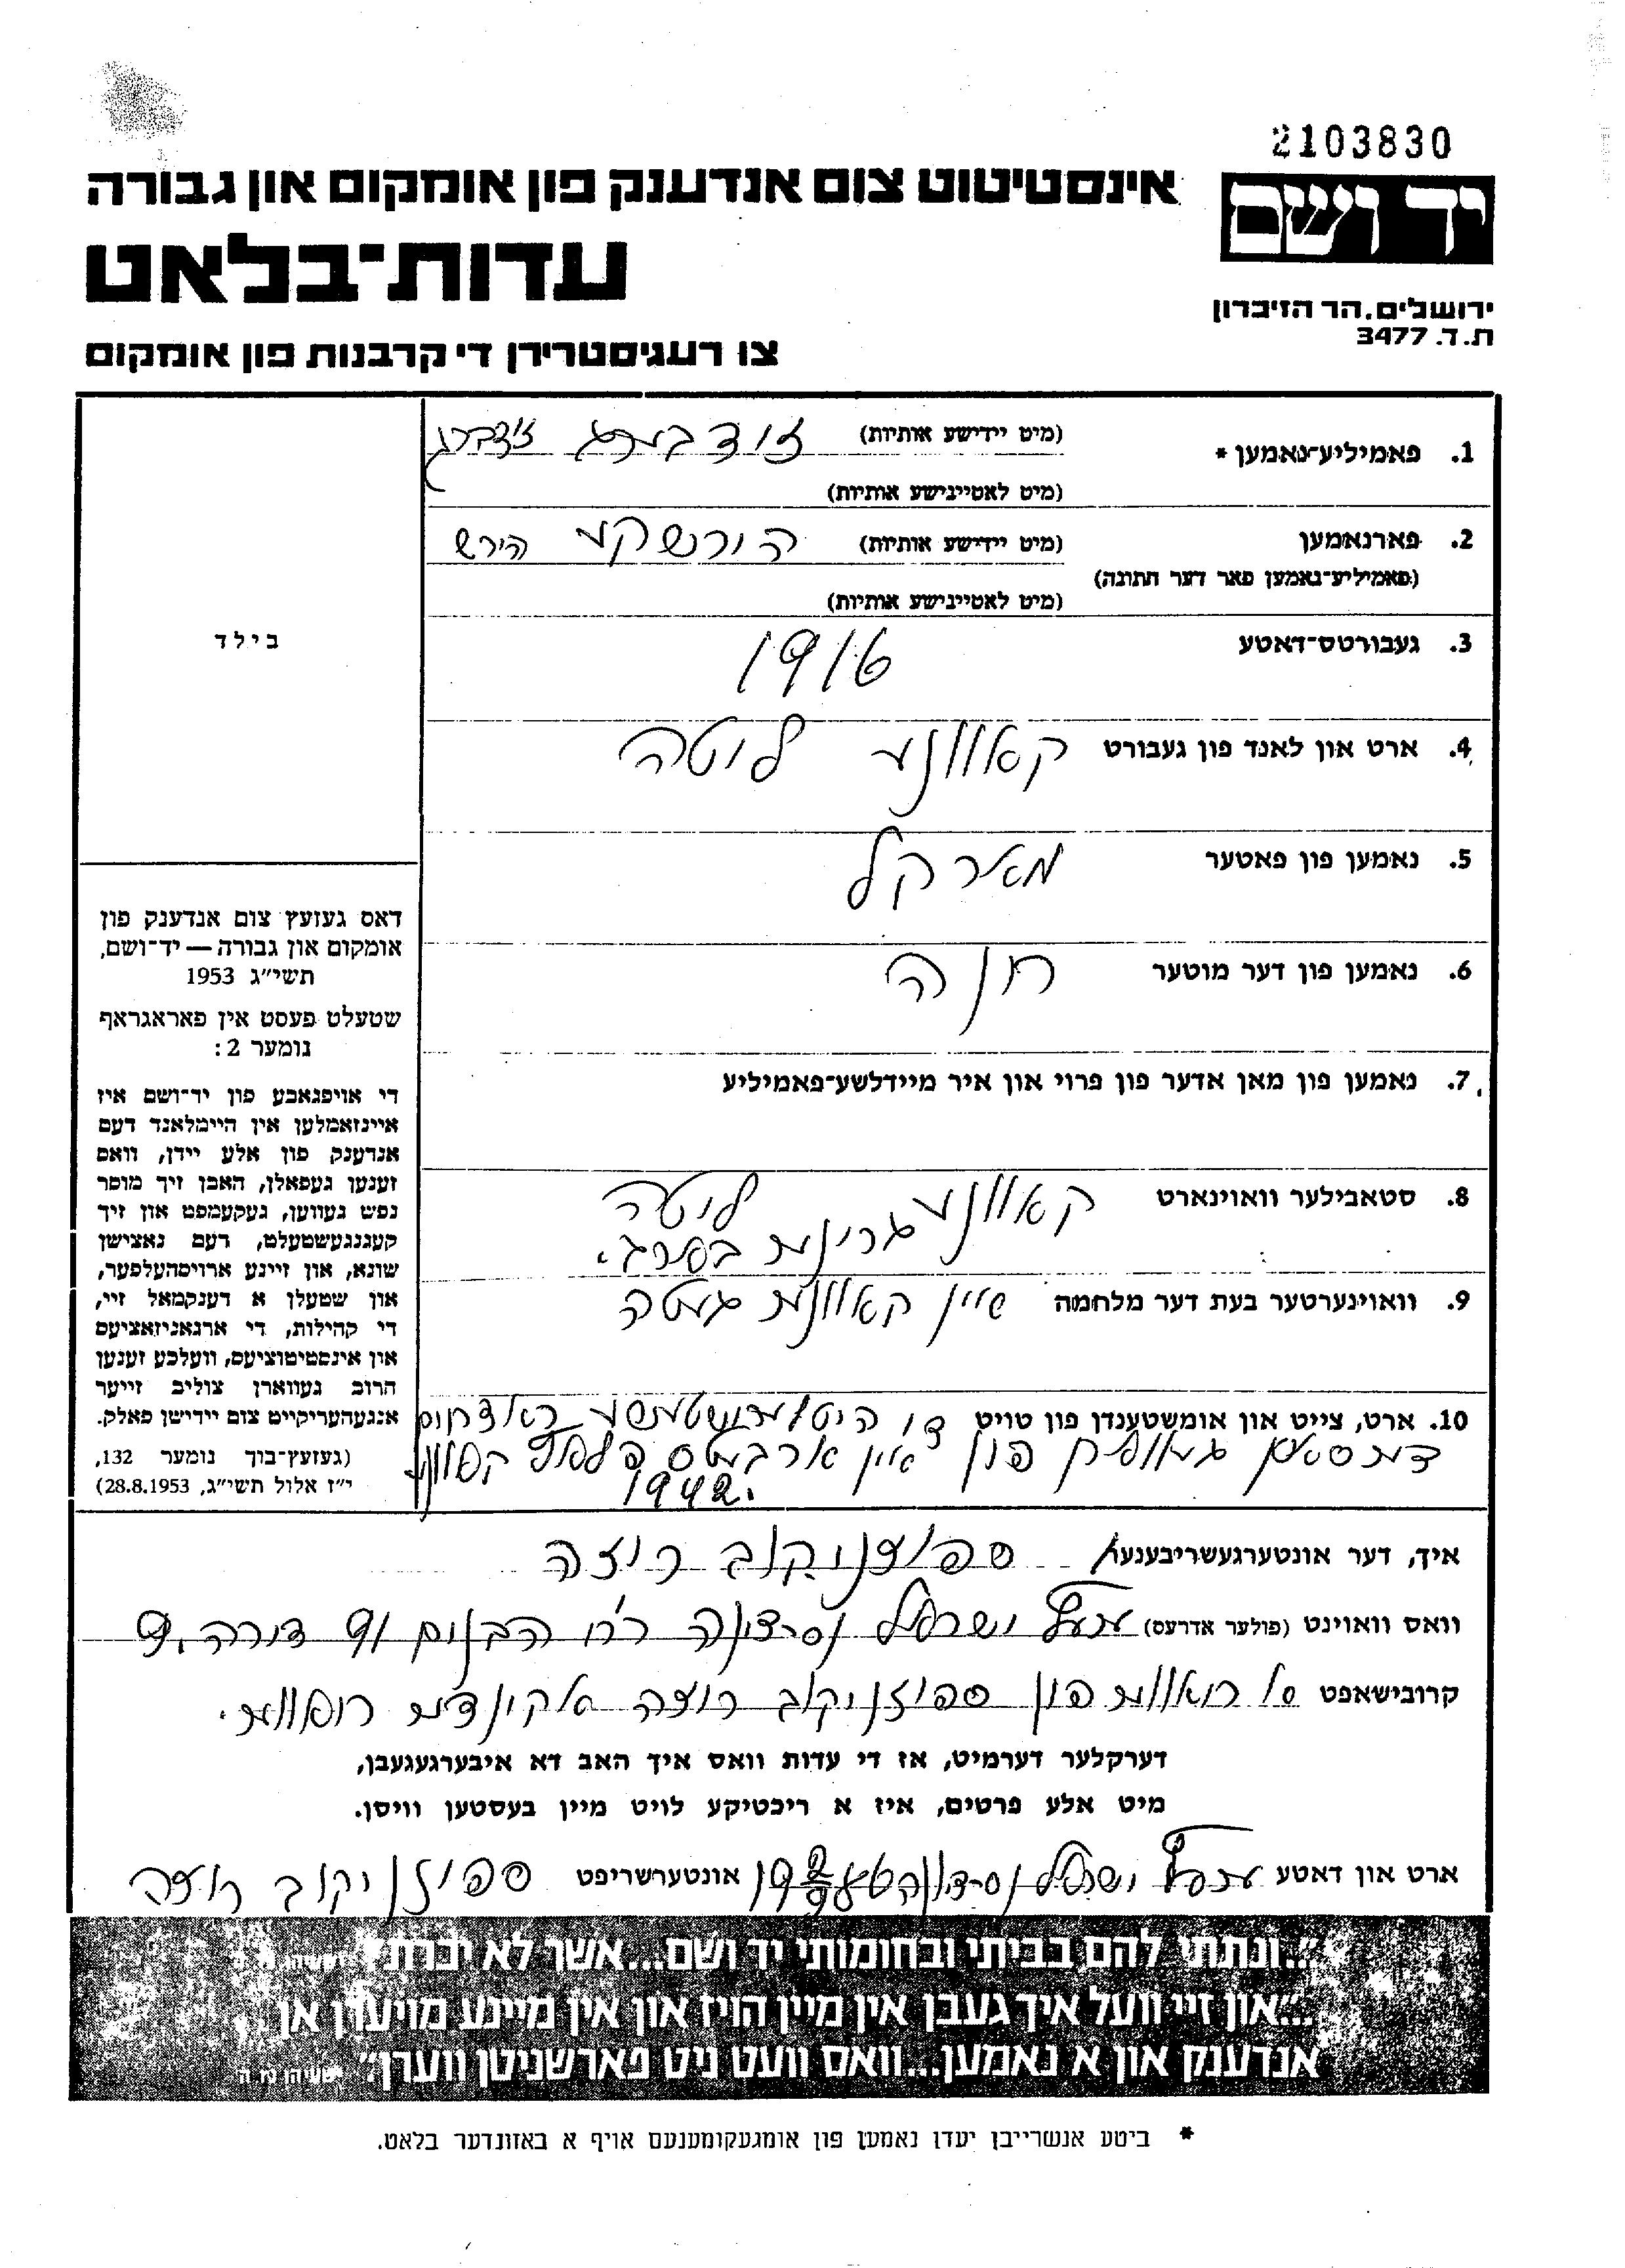 2103830
יד ושם
ירושלים. הר הזיכרון
ת.ד. 3477
אינסטיטוט צום אנדענק פון אומקום און גבורה
עדות-בלאט
צו רעגיסטרירן די קרבנות פון אומקום
1. פאמיליע-נאמען * (מיט יידישע אותיות)
(מיט לאטיינישע אותיות)
2. פארנאמען (מיט יידישע אותיות) הירש
(פאמיליע-נאמען פאר דער חתונה)
(מיט לאטיינישע אותיות)
3. געבורטס-דאטע 1916
4. ארט און לאנד פון געבורט קאוונע ליטה
5. נאמען פון פאטער
6. נאמען פון דער מוטער חנה
7. נאמען פון מאן אדער פון פרוי און איר מיידלשע-פאמיליע
8. סטאבילער וואוינארט קאוונע ליטה
9. וואוינערטער בעת דער מלחמה אין קאוונע געטה
10. ארט, צייט און אומשטענדן פון טויט די
פון אין ארבעטס
1942.
בילד
דאס געזעץ צום אנדענק פון
אומקום און גבורה — יד-ושם,
תשי"ג 1953
שטעלט פעסט אין פאראגראף
נומער 2:
די אויפגאבע פון יד-ושם איז
איינזאמלען אין היימלאנד דעם
אנדענק פון אלע יידן, וואס
זענען געפאלן, האבן זיך מוסר
נפש געווען, געקעמפט און זיך
קעגנגעשטעלט, דעם נאצישן
שונא, און זיינע ארויסהעלפער,
און שטעלן א דענקמאל זיי,
די קהילות, די ארגאניזאציעס
און אינסטיטוציעס, וועלכע זענען
חרוב געווארן צוליב זייער
אנגעהעריקייט צום יידישן פאלק.
(געזעץ-בוך נומער 132,
י"ז אלול תשי"ג, 28.8.1953)
איך, דער אונטערגעשריבענער ספוזניקוב רוזה
וואס וואוינט (פולער אדרעס) ישראל נס-ציונה רח' הבנים 19 דירה 9
קרובישאפט פון ספוזניקוב רוזה
דערקלער דערמיט, אז די עדות וואס איך האב דא איבערגעגעבן,
מיט אלע פרטים, איז א ריכטיקע לויט מיין בעסטען וויסן.
ארט און דאטע ישראל אונטערשריפט ספוזניקוב רוזה
"...ונתתי להם בביתי ובחומותי יד ושם...אשר לא יכרת"
"...און זיי וועל איך געבן אין מיין הויז און אין מיינע מויערן אן
אנדענק און א נאמען...וואס וועט ניט פארשניטן ווערן" ישעיהו נו ה
* ביטע אנשרייבן יעדן נאמען פון אומגעקומענעם אויף א באזונדער בלאט.